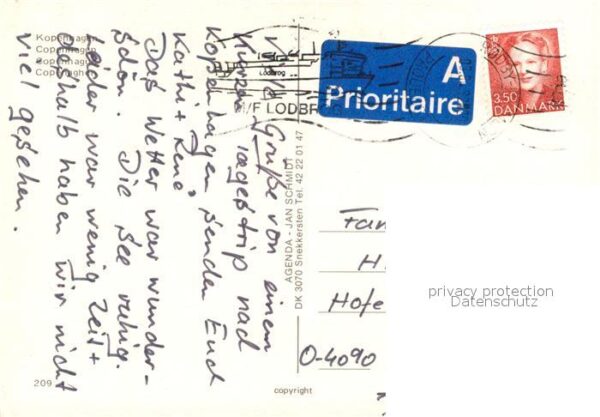 Kopenhagen
Copenhagen
Copenhague
Copenhagen
Viele Grüße von einem
Kurzen Tagestrip nach
Kopenhagen senden Euch
Kathi + René
Das Wetter war wunder-
schön. Die See ruhig.
Leider war wenig Zeit +
deshalb haben wir nicht
viel gesehen.
209
Lodbrog
M/F LODBR
A
Prioritaire
RØDBY
3.50
DANMARK
AGENDA - JAN SCHMIDT
DK 3070 Snekkersten Tel. 42 22 01 47
Fam
H
Hofe
O-4090
privacy protection
Datenschutz
copyright